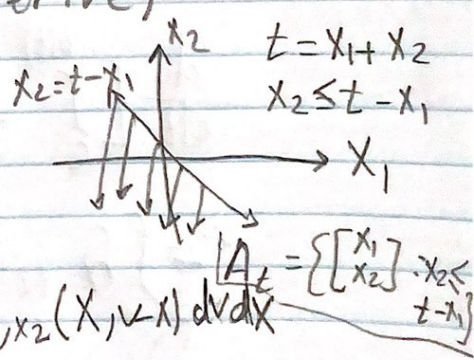 x₂
t = x₁ + x₂
x₂ = t - x₁
x₂ ≤ t - x₁
x₁
A_t = {[x₁ x₂] : x₂ ≤ t - x₁}
,x₂(x, v-x) dv dx